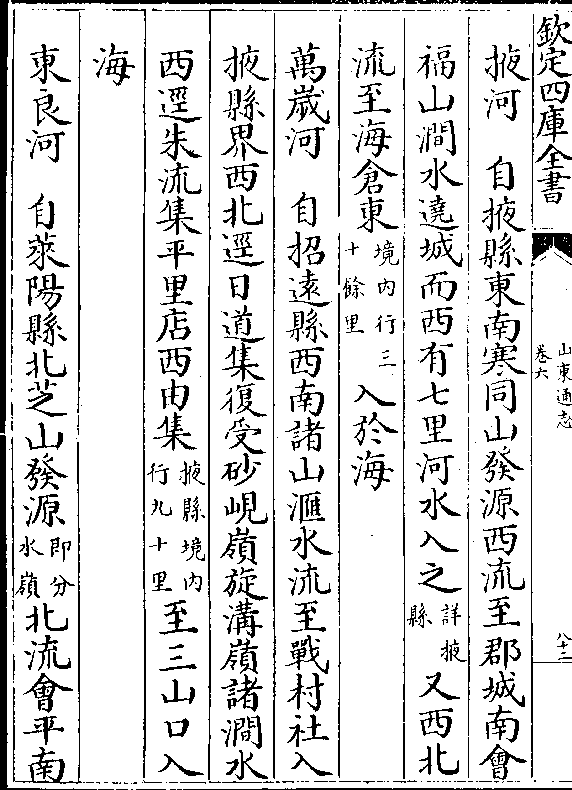 欽定四庫全書
山東通志
卷六
八十二
掖河　自掖縣東南寒同山發源西流至郡城南會
福山澗水遶城而西有七里河水入之詳掖縣又西北
流至海倉東境内行三十餘里入於海
萬歲河　自招遠縣西南諸山滙水流至戰村社入
掖縣界西北逕日道集復受砂峴嶺旋溝嶺諸澗水
西逕朱流集平里店西由集掖縣境内行九十里至三山口入
海
東良河　自萊陽縣北芝山發源即分水嶺北流會平南